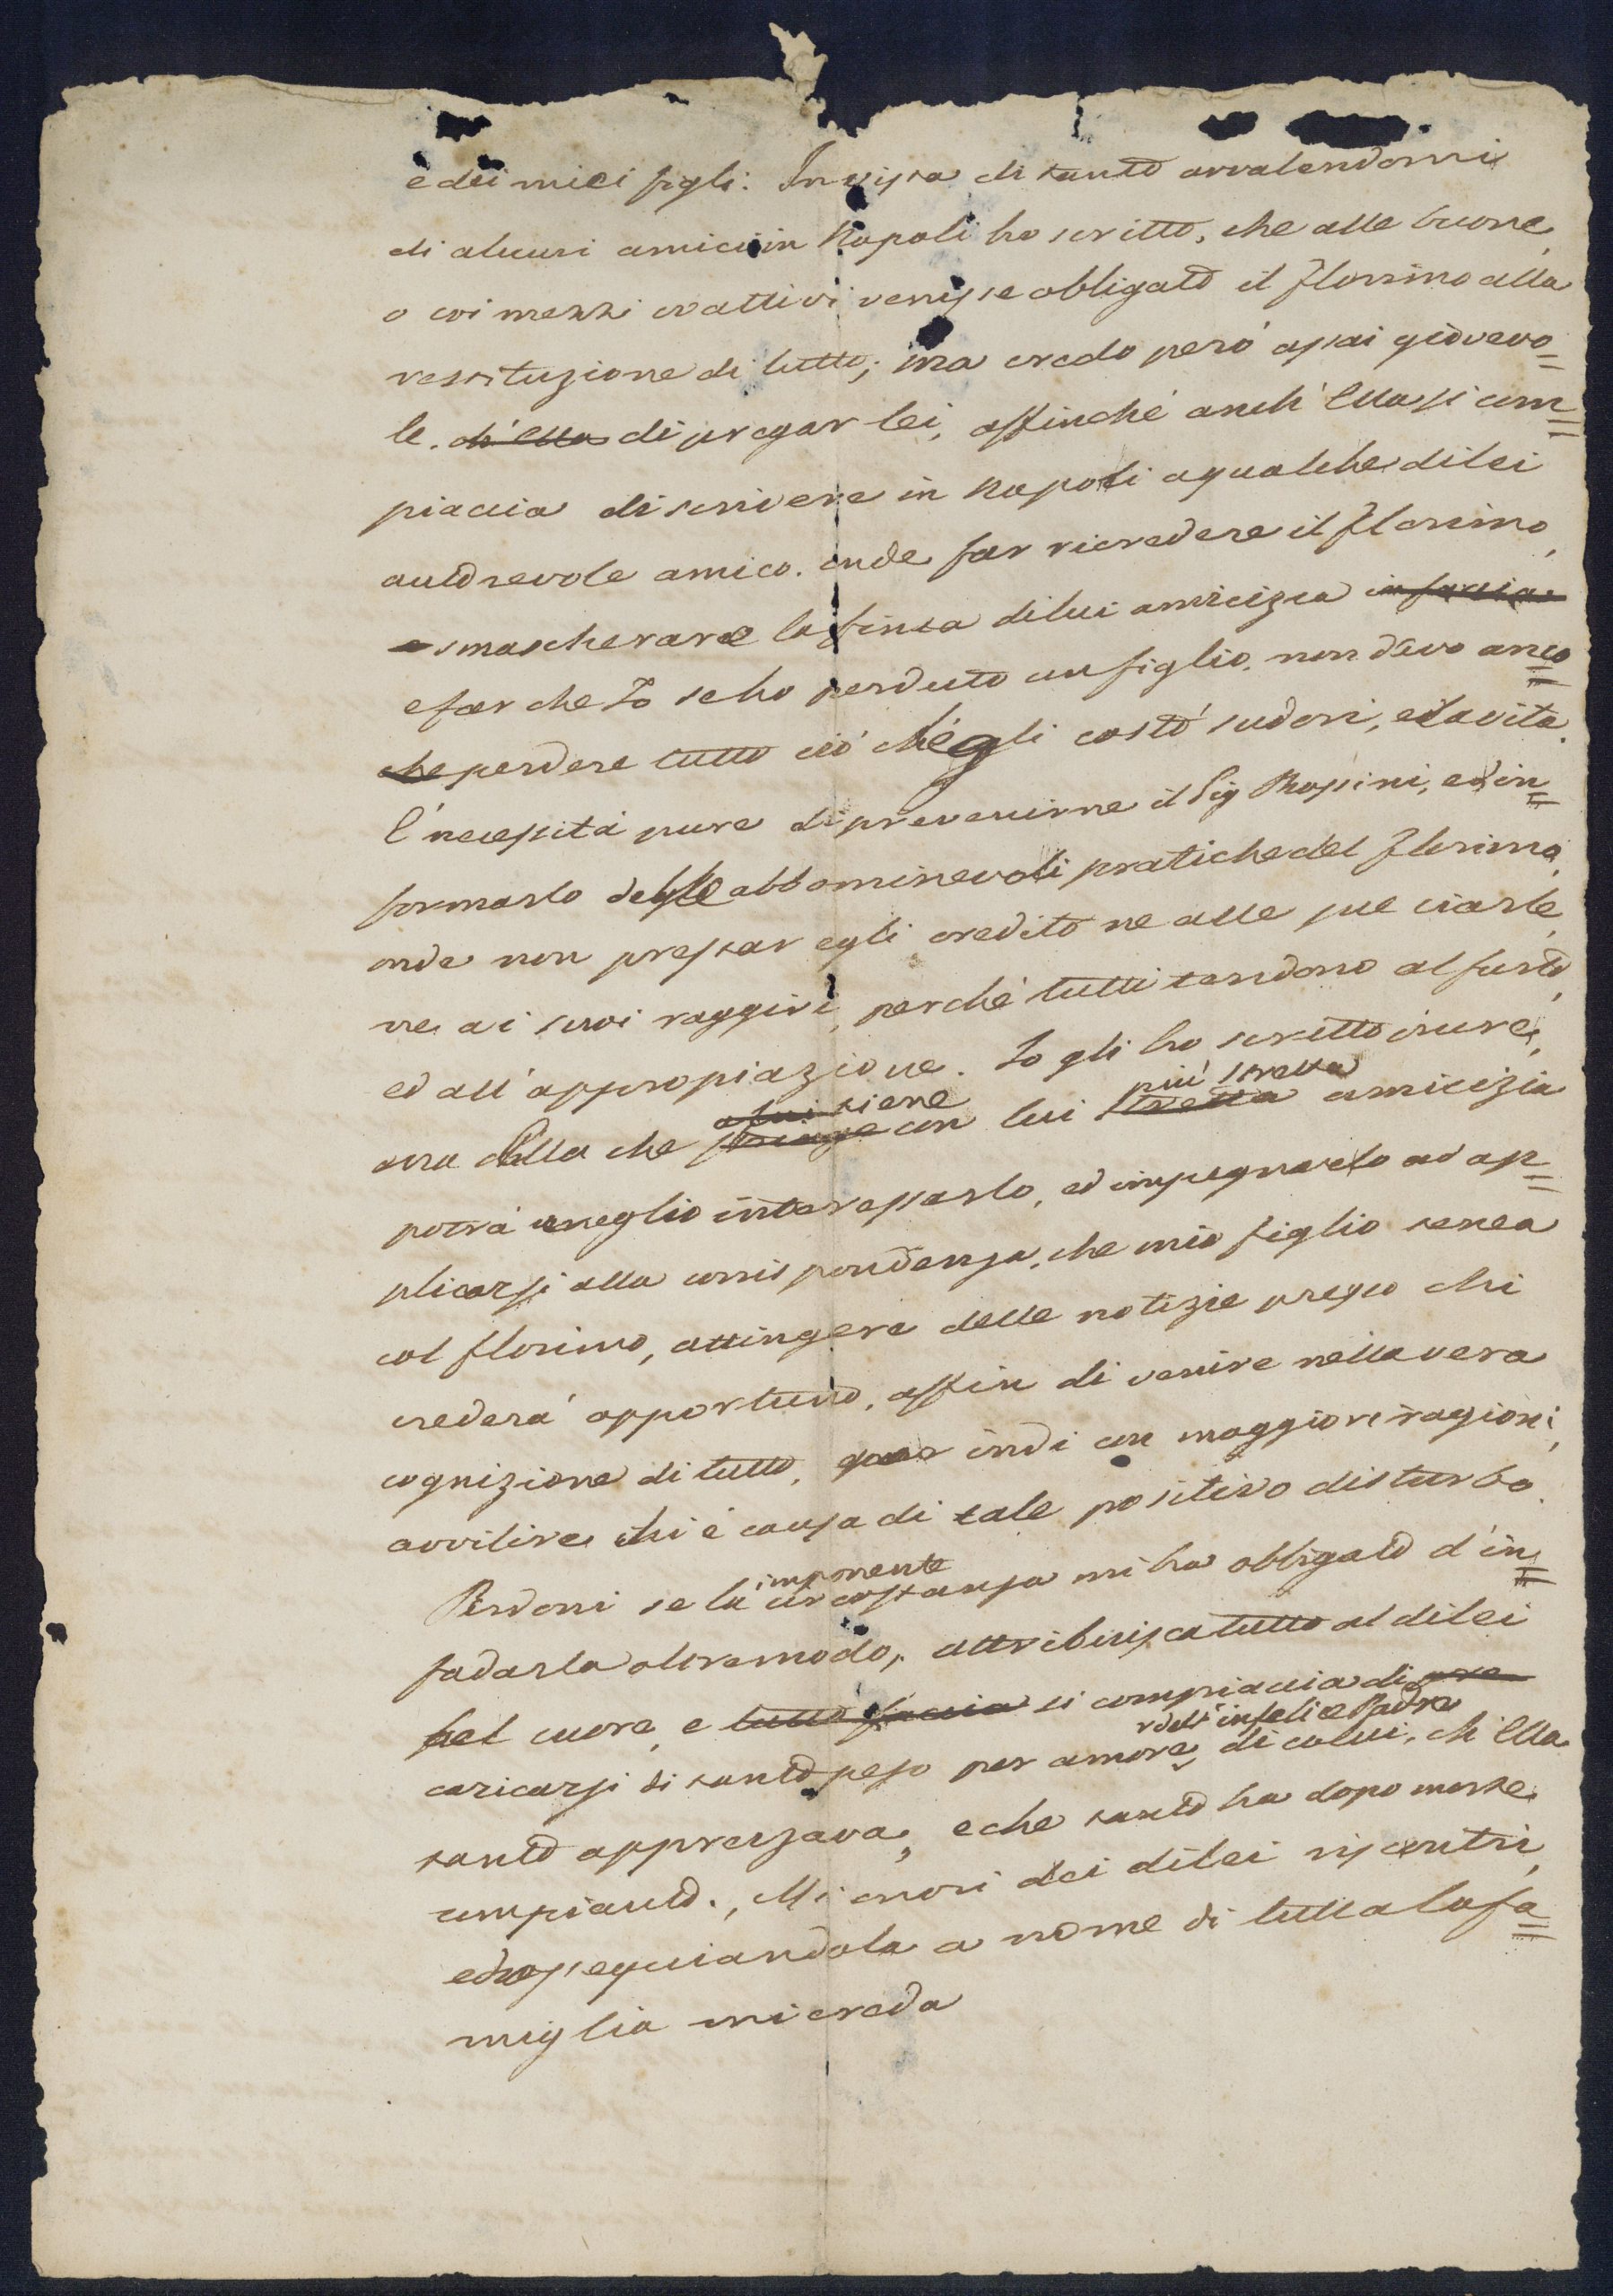 e dei miei figli. In vista di tanto avvalendomi
di alcuni amici in Napoli ho scritto, che alle buone,
o coi mezzi coattivi venisse obligato il Florimo alla
restituzione di tutto; ma credo però assai giovevo=
le. ch'Ella di pregar lei, affinché anch'Ella si com=
piaccia di scrivere in Napoli a qualche di lei
autorevole amico. onde far ricredere il Florimo,
e smascherare la finta di lui amicizia in faccia
e far che Io se ho perduto un figlio, non devo anco
che perdere tutto ciò ch'egli costò sudori, e la vita.
È necessità pure di prevenirne il Sig Rossini, ed in=
formarlo delle abbominevoli pratiche del Florimo,
onde non prestar egli credito ne alle sue ciarle,
ne ai suoi raggiri, perché tutti tendono al furto,
ed all'appropiazione. Io gli ho scritto pure,
a lui tiene più stretta
ma Ella che stringe con lui stretta amicizia
potrà meglio interessarlo, ed impegnarlo ad ap=
plicarsi alla corrispondenza, che mio figlio tenea
col Florimo, attingere delle notizie presso chi
crederà opportuno, affin di venire nella vera
cognizione di tutto, per indi con maggiori ragioni,
avvilire chi è causa di tale positivo disturbo.
imponente
Perdoni se la circostanza mi ha obbligato d'in=
fadarla oltremodo, attribuisca tutto al di lei
bel cuore, e tutto faccia si compiaccia di
dell'infelice Padre
caricarsi di tanto peso per amore, di colui, ch'Ella
tanto apprezzava, e che tanto ha dopo morte
compianto. Mi onori dei di lei riscontri,
ed ossequiandola a nome di tutta la fa=
miglia mi creda